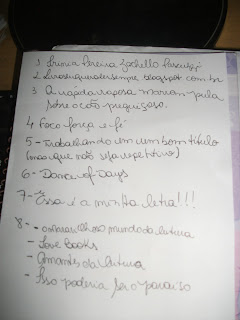 1 Bruna Pereira
2 Livrosquequerodersempre.blogspot.com.br
3 A rápida raposa marrom pula
sobre o cão preguiçoso.
4 Foco força e fé
5 - Trabalhando em um bom título
(mas que não seja repetitivo)
6 - Dance of Days
7 - Essa é a minha letra!!!
8 - no mundo da leitura
- Love books
- Amantes da leitura
- Isso poderia ser o paraíso